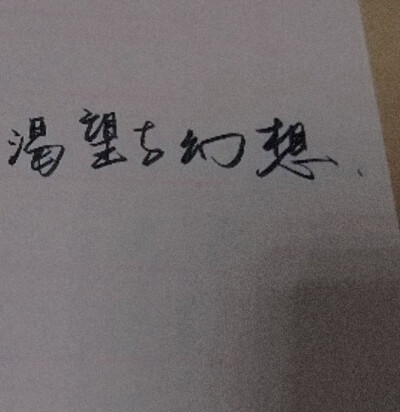 渴望与幻想、